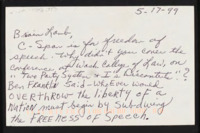 5-17-99
Brian Lamb,
C-Span is for freedom of
speech. Why didn't you cover the
conference at Wash. College of Law, on
"Two Party System & Its Discontents"?
Ben Franklin said - Whoever would
OVERTHROW the liberty of a
NATION must begin by subduing
the FREENESS of SPEECH.